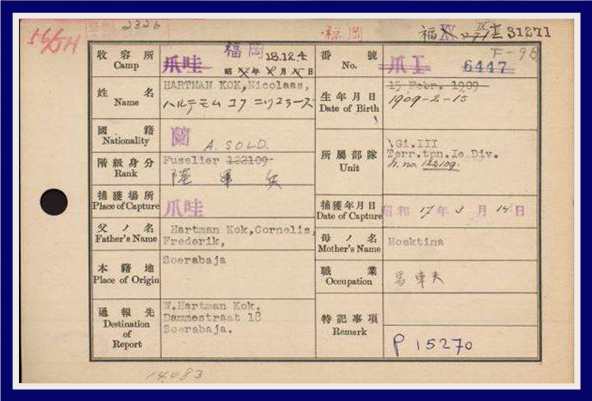 2326 福岡 福 31271
56/SH F-9B
收容所 Camp 爪哇 福岡 18.12.4
昭 年 月 日
番號 No. 爪 I 6447
姓名 Name HARTMAN KOK, Nicolaas,
生年月日 Date of Birth 15 Febr. 1909
1909-2-15
國籍 Nationality 蘭 A. SOLD.
所屬部隊 Unit \Gi.III
Terr.tpn.Ie.Div.
階級身分 Rank Fuselier 122109
陸軍 兵
捕獲場所 Place of Capture 爪哇
捕獲年月日 Date of Capture 昭和 17 年 3 月 14 日
父ノ名 Father's Name Hartman Kok,Cornelis,
Frederik,
母ノ名 Mother's Name Hoektina
本籍地 Place of Origin Soerabaja
職業 Occupation
通報先 Destination of Report W.Hartman Kok.
Dammestraat 18
Soerabaja.
特記事項 Remark P 15270
14083